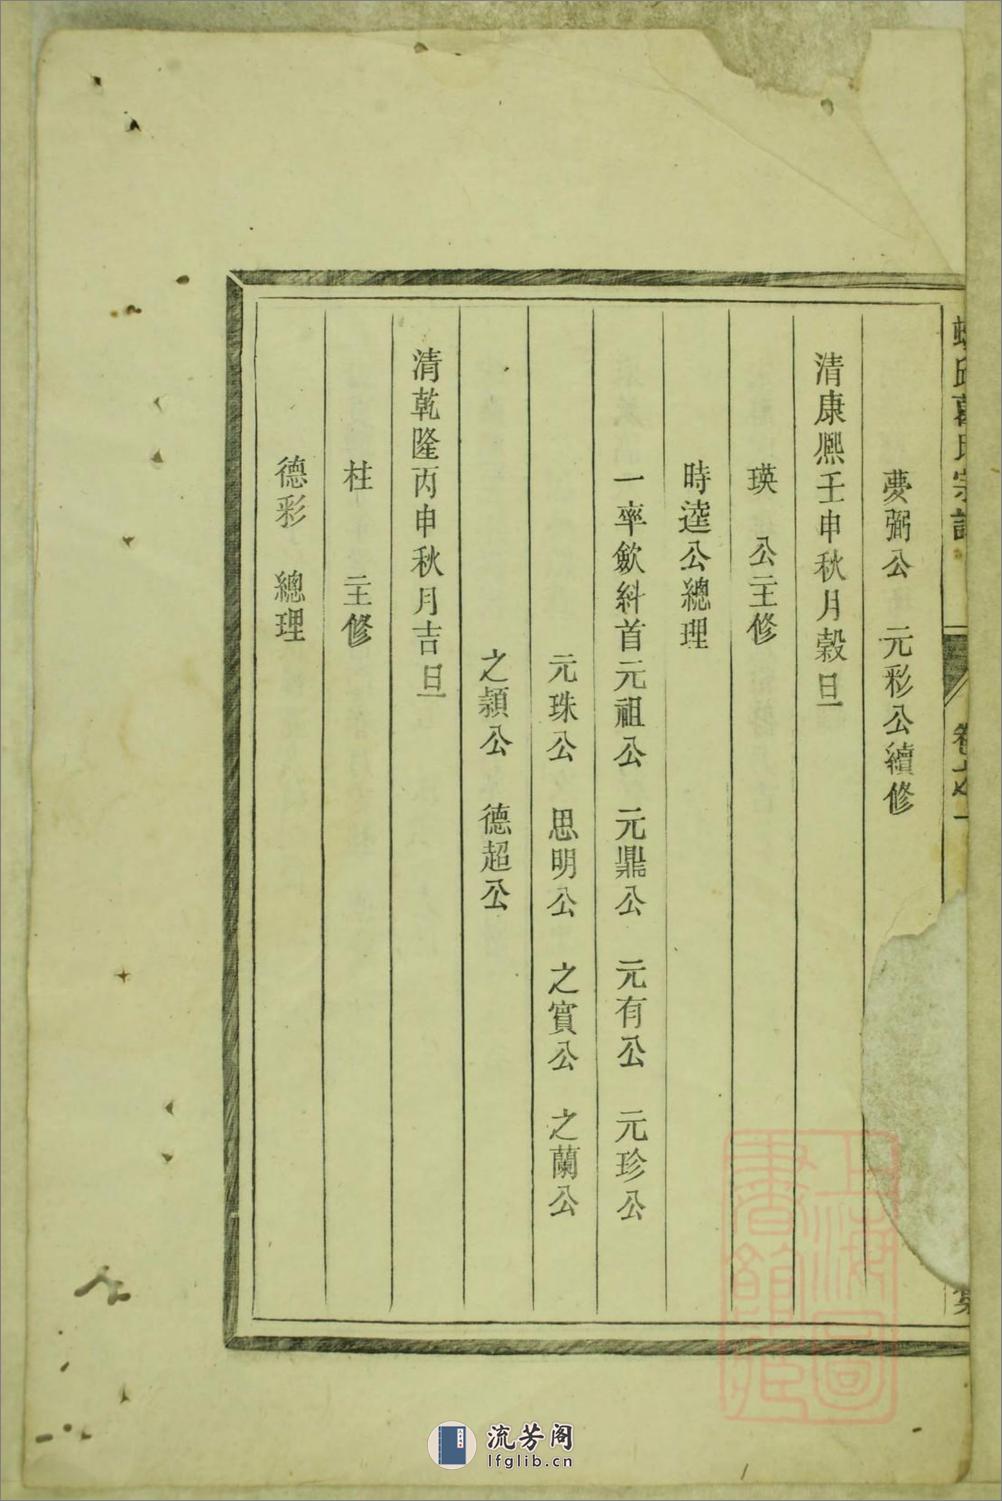 邱葛氏宗譜
卷之一
夢弼公　元彩公續修
清康熙壬申秋月穀旦
瑛　公主修
時逵公總理
一率斂糾首元祖公　元鼎公　元有公　元珍公
元珠公　思明公　之賓公　之蘭公
之穎公　德超公
清乾隆丙申秋月吉旦
柱　主修
德彩　總理
上海圖書館藏
流芳阁
lfglib.cn